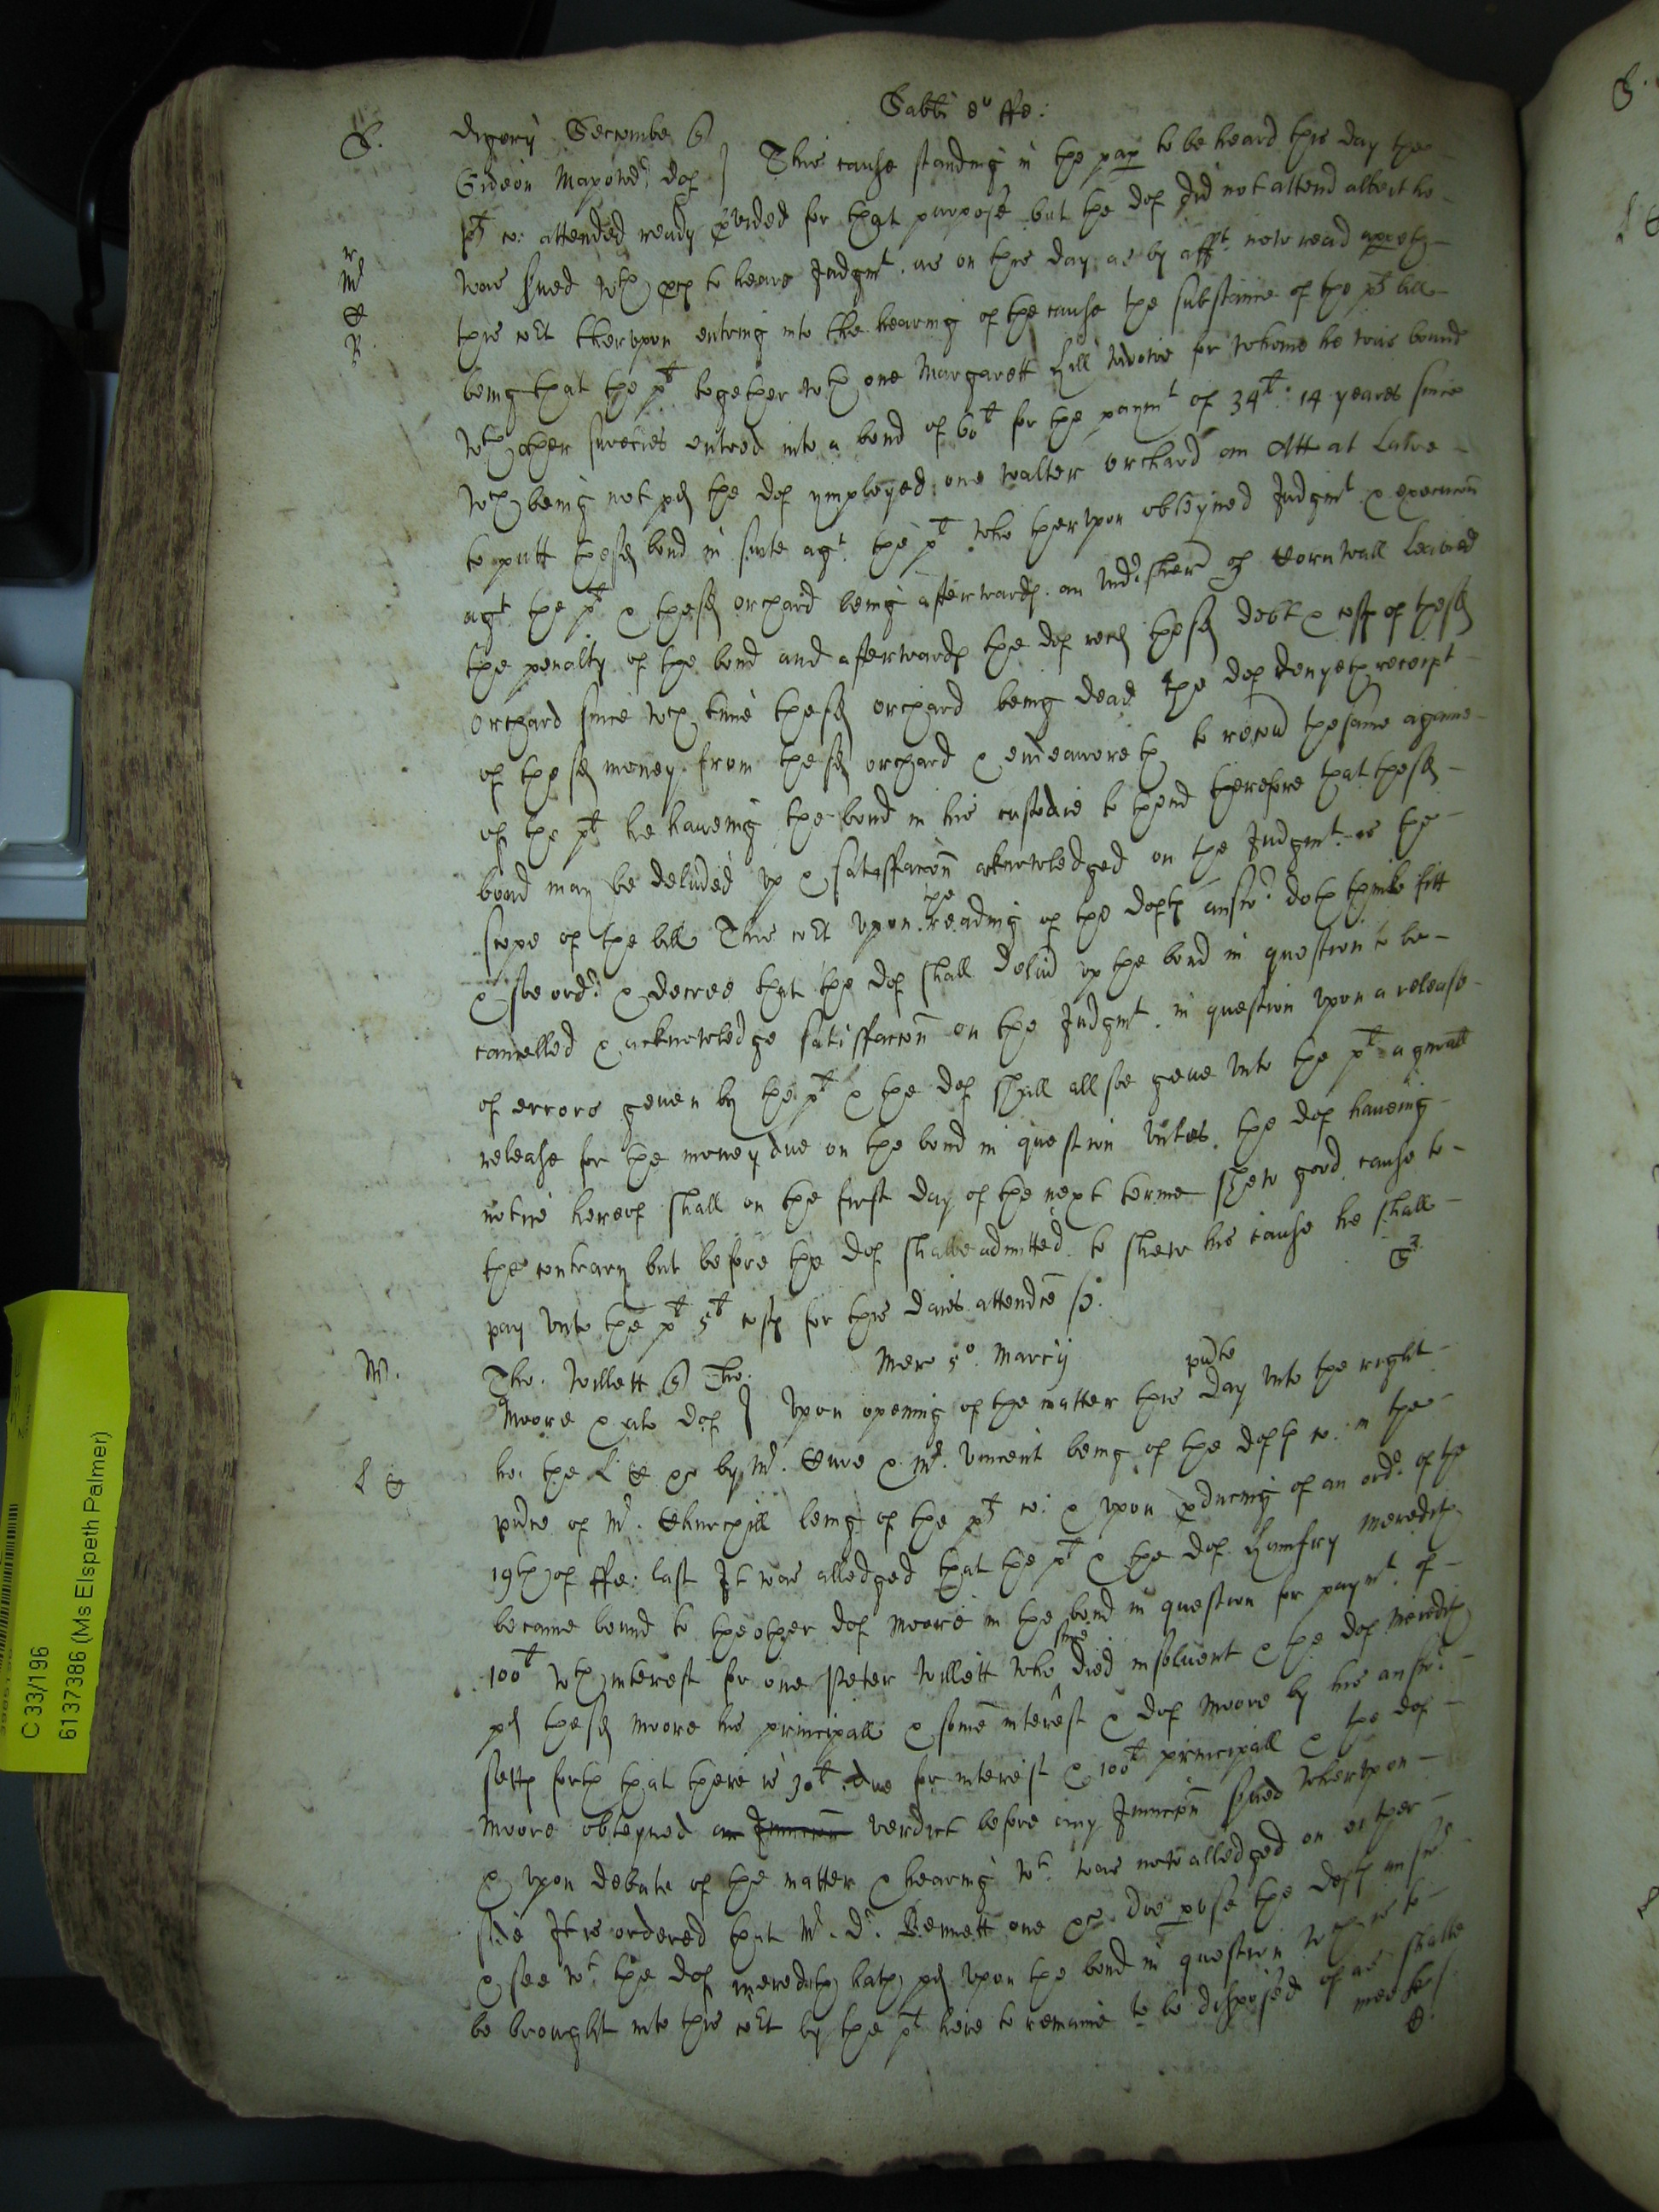 Sabbti 8o ffe:
S. Digory Seccombe
Gideon Mapowdr def } This cause standing in the pap to be heard this day the
plts co: attended ready pvided for that purpose but the def did not attend albeit he
r
Mr
C
R
was srued wth pces to heare Judgmt as on this day as by afft now read appeth
this cort therupon entring into the hearing of the cause the substance of the plts bill
being that the plt together wth one Margarett Hill widowe for whome he was bound
wth other suerties entred into a bond of 60l for the paymt of 34l: 14 yeares since
wch being not pd the def ymployed one walter Orchard an Att at Lawe
to putt the sd bond in suite agt the plt who therupon obteyned Judgmt & execucon
agt the plt & the sd orchard being afterwards an undr sher of Cornwall Leavied
the penalty of the bond and afterwards the def recd the sd debt & costs of the sd
Orchard since wch time the sd orchard being dead the def denyeth receipt
of the sd money from the sd orchard & endeavoreth to recou the same againe
of the plt he haveing the bond in his custodie to thend therefore that the sd
bond may be delivred up & satisfaccon acknowledged on the Judgmt is the
scope of the bill This cort upon the reading of the defts answr doth thinke fitt
& soe ordr & decree that the def shall delivr up the bond in question to be
cancelled & acknowledge satisfaccon on the Judgmt in question upon a release
of errors geven by the plt & the def shall allsoe geve unto the plt a gnrall
release for the money due on the bond in question unles the def haveing
notice hereof shall on the first day of the next terme shew good cause to
the contrary but before the def shalbe admitted to shew his cause he shall
pay unto the plt 5l costs for this daies attendce
Mer 5o Marcij
W. Tho. Willett Tho.
Moore & ats def } Upon opening of the matter this pnte day unto the right
L C
ho: the L: C &c by Mr. Ewre & Mr. Vincent being of the defts co: in the
pnce of Mr. Churchill being of the plts co: & upon pducing of an ordr of the
19th of ffe: last It was alledged that the plt & the def Humfry Meredith
became bound to the other def Moore in the bond in question for paymt of
100l wth interest for one Peter Willett who since died insolvent & the def Meredith
pd the sd Moore his principall & some interest & def Moore by his answr
setth forth that there is 30l due for interest & 100l principall & the def
Moore obteyned an Iniuncon verdict before any Iniuncon srued wherupon
& upon debate of the matter & hearing wt was now alledged on either
side It is ordered that Mr. Dr. Bennett one &c doe pvse the defts answr
& see wt the def meredith hath pd upon the bond in question wch is to
be brought into this cort by the plt here to remaine to be disposed of as shalbe
meete
C 33/196
6137386 (Ms Elspeth Palmer)